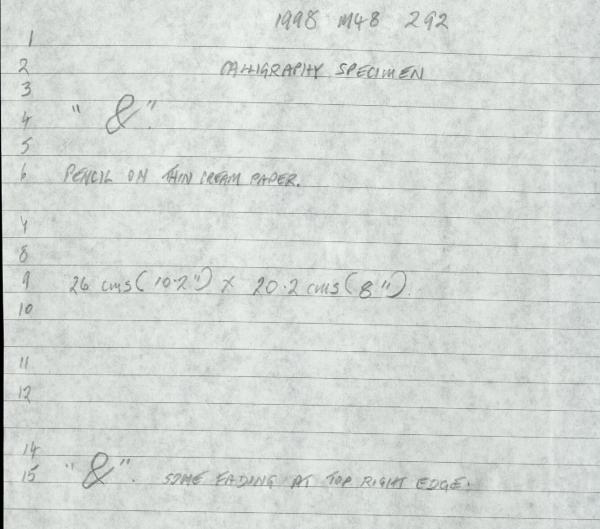 1998 M48 292
1
2 CALLIGRAPHY SPECIMEN
3
4 " & ".
5
6 PENCIL ON THIN CREAM PAPER.
7
8
9 26 cms (10.2") X 20.2 cms (8").
10
11
12
14
15 " & ". SOME FADING AT TOP RIGHT EDGE.